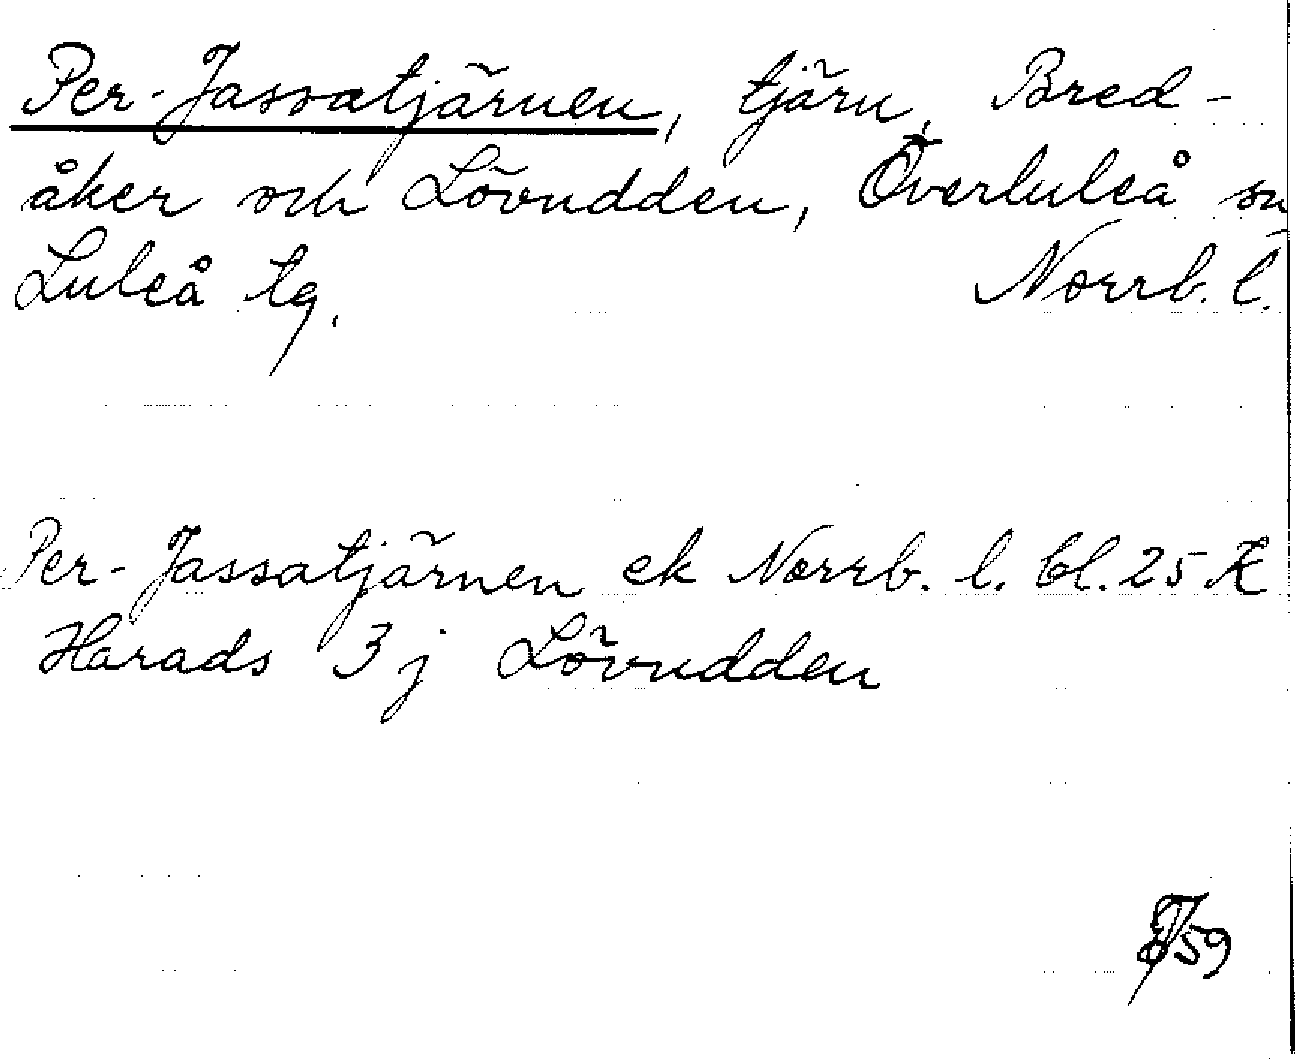 Per-Jassatjärnen, tjärn, Bred-
åker och Lövudden, Överluleå sn
Luleå tg. Norrb. l.
Per-Jassatjärnen ek Norrb. l. bl. 25 K
Harads 3 j Lövudden
59